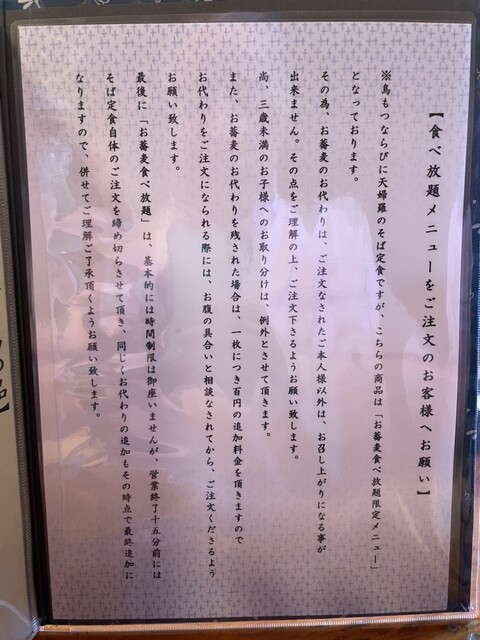 【食べ放題メニューをご注文のお客様へお願い】
※鳥もつならびに天婦羅のそば定食ですが、こちらの商品は「お蕎麦食べ放題限定メニュー」
となっております。
その為、お蕎麦のお代わりは、ご注文なされたご本人様以外は、お召し上がりになる事が
出来ません。その点をご理解の上、ご注文下さるようお願い致します。
尚、三歳未満のお子様へのお取り分けは、例外とさせて頂きます。
また、お蕎麦のお代わりを残された場合は、一枚につき百円の追加料金を頂きますので
お代わりをご注文になられる際には、お腹の具合いと相談なされてから、ご注文くださるよう
お願い致します。
最後に「お蕎麦食べ放題」は、基本的には時間制限は御座いませんが、営業終了十五分前には
そば定食自体のご注文を締め切らさせて頂き、同じくお代わりの追加もその時点で最終追加に
なりますので、併せてご理解ご了承頂くようお願い致します。